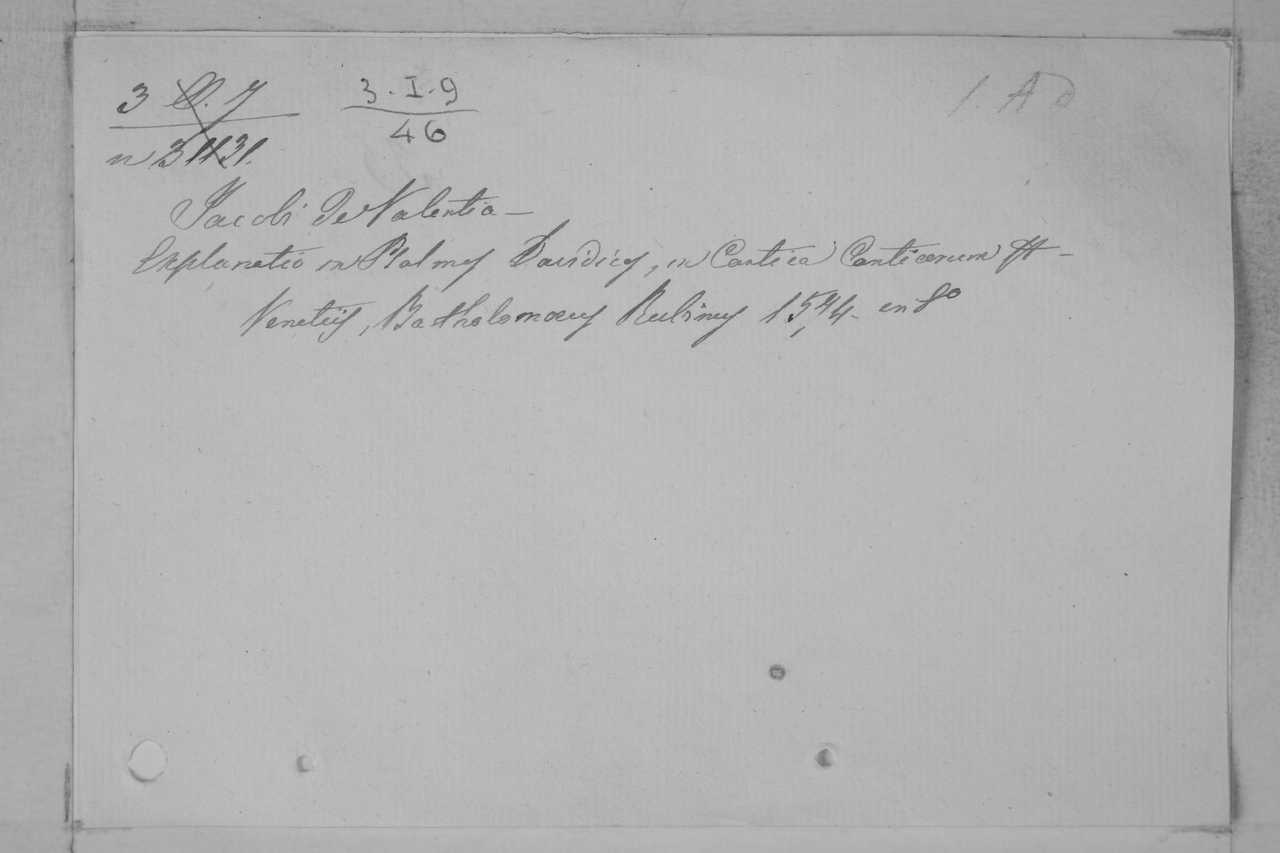 3 . 7 3 . I . 9
n 3 46
1. A
Jacobi de Valentia —
Explanatio in Psalmos Davidicos, in Cantica Canticorum &ª —
Venetiis, Bartholomæus Rubinus 1544. en fº